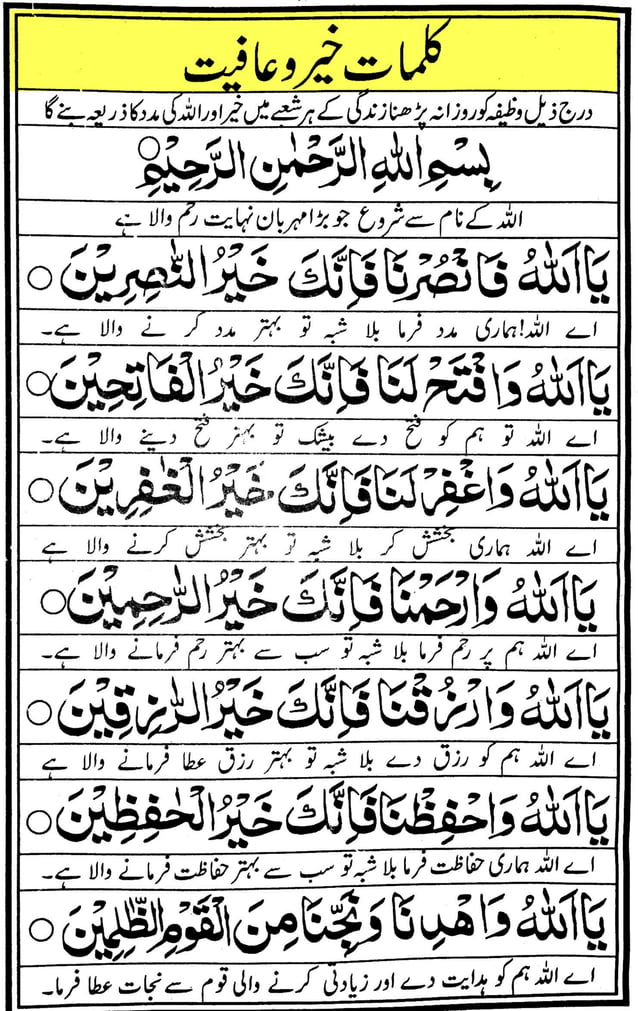 کلمات خیر و عافیت
درج ذیل وظیفہ کو روزانہ پڑھنا زندگی کے ہر شعبے میں خیر اور اللہ کی مدد کا ذریعہ بنے گا
بِسْمِ اللهِ الرَّحْمٰنِ الرَّحِيْمِ○
اللہ کے نام سے شروع جو بڑا مہربان نہایت رحم والا ہے
يَا اَللهُ فَانْصُرْنَا فَاِنَّكَ خَيْرُ النّٰصِرِيْنَ ○
اے اللہ! ہماری مدد فرما بلا شبہ تو بہتر مدد کرنے والا ہے۔
يَا اَللهُ وَافْتَحْ لَنَا فَاِنَّكَ خَيْرُ الْفَاتِحِيْنَ ○
اے اللہ تو ہم کو فتح دے بیشک تو بہتر فتح دینے والا ہے۔
يَا اَللهُ وَاغْفِرْ لَنَا فَاِنَّكَ خَيْرُ الْغٰفِرِيْنَ ○
اے اللہ ہماری بخشش کر بلا شبہ تو بہتر بخشش کرنے والا ہے
يَا اَللهُ وَارْحَمْنَا فَاِنَّكَ خَيْرُ الرّٰحِمِيْنَ ○
اے اللہ ہم پر رحم فرما بلا شبہ تو سب سے بہتر رحم فرمانے والا ہے۔
يَا اَللهُ وَارْزُقْنَا فَاِنَّكَ خَيْرُ الرّٰزِقِيْنَ ○
اے اللہ ہم کو رزق دے بلا شبہ تو بہتر رزق عطا فرمانے والا ہے
يَا اَللهُ وَاحْفِظْنَا فَاِنَّكَ خَيْرُ الْحٰفِظِيْنَ ○
اے اللہ ہماری حفاظت فرما بلا شبہ تو سب سے بہتر حفاظت فرمانے والا ہے۔
يَا اَللهُ وَاهْدِنَا وَنَجِّنَا مِنَ الْقَوْمِ الظّٰلِمِيْنَ ○
اے اللہ ہم کو ہدایت دے اور زیادتی کرنے والی قوم سے نجات عطا فرما۔